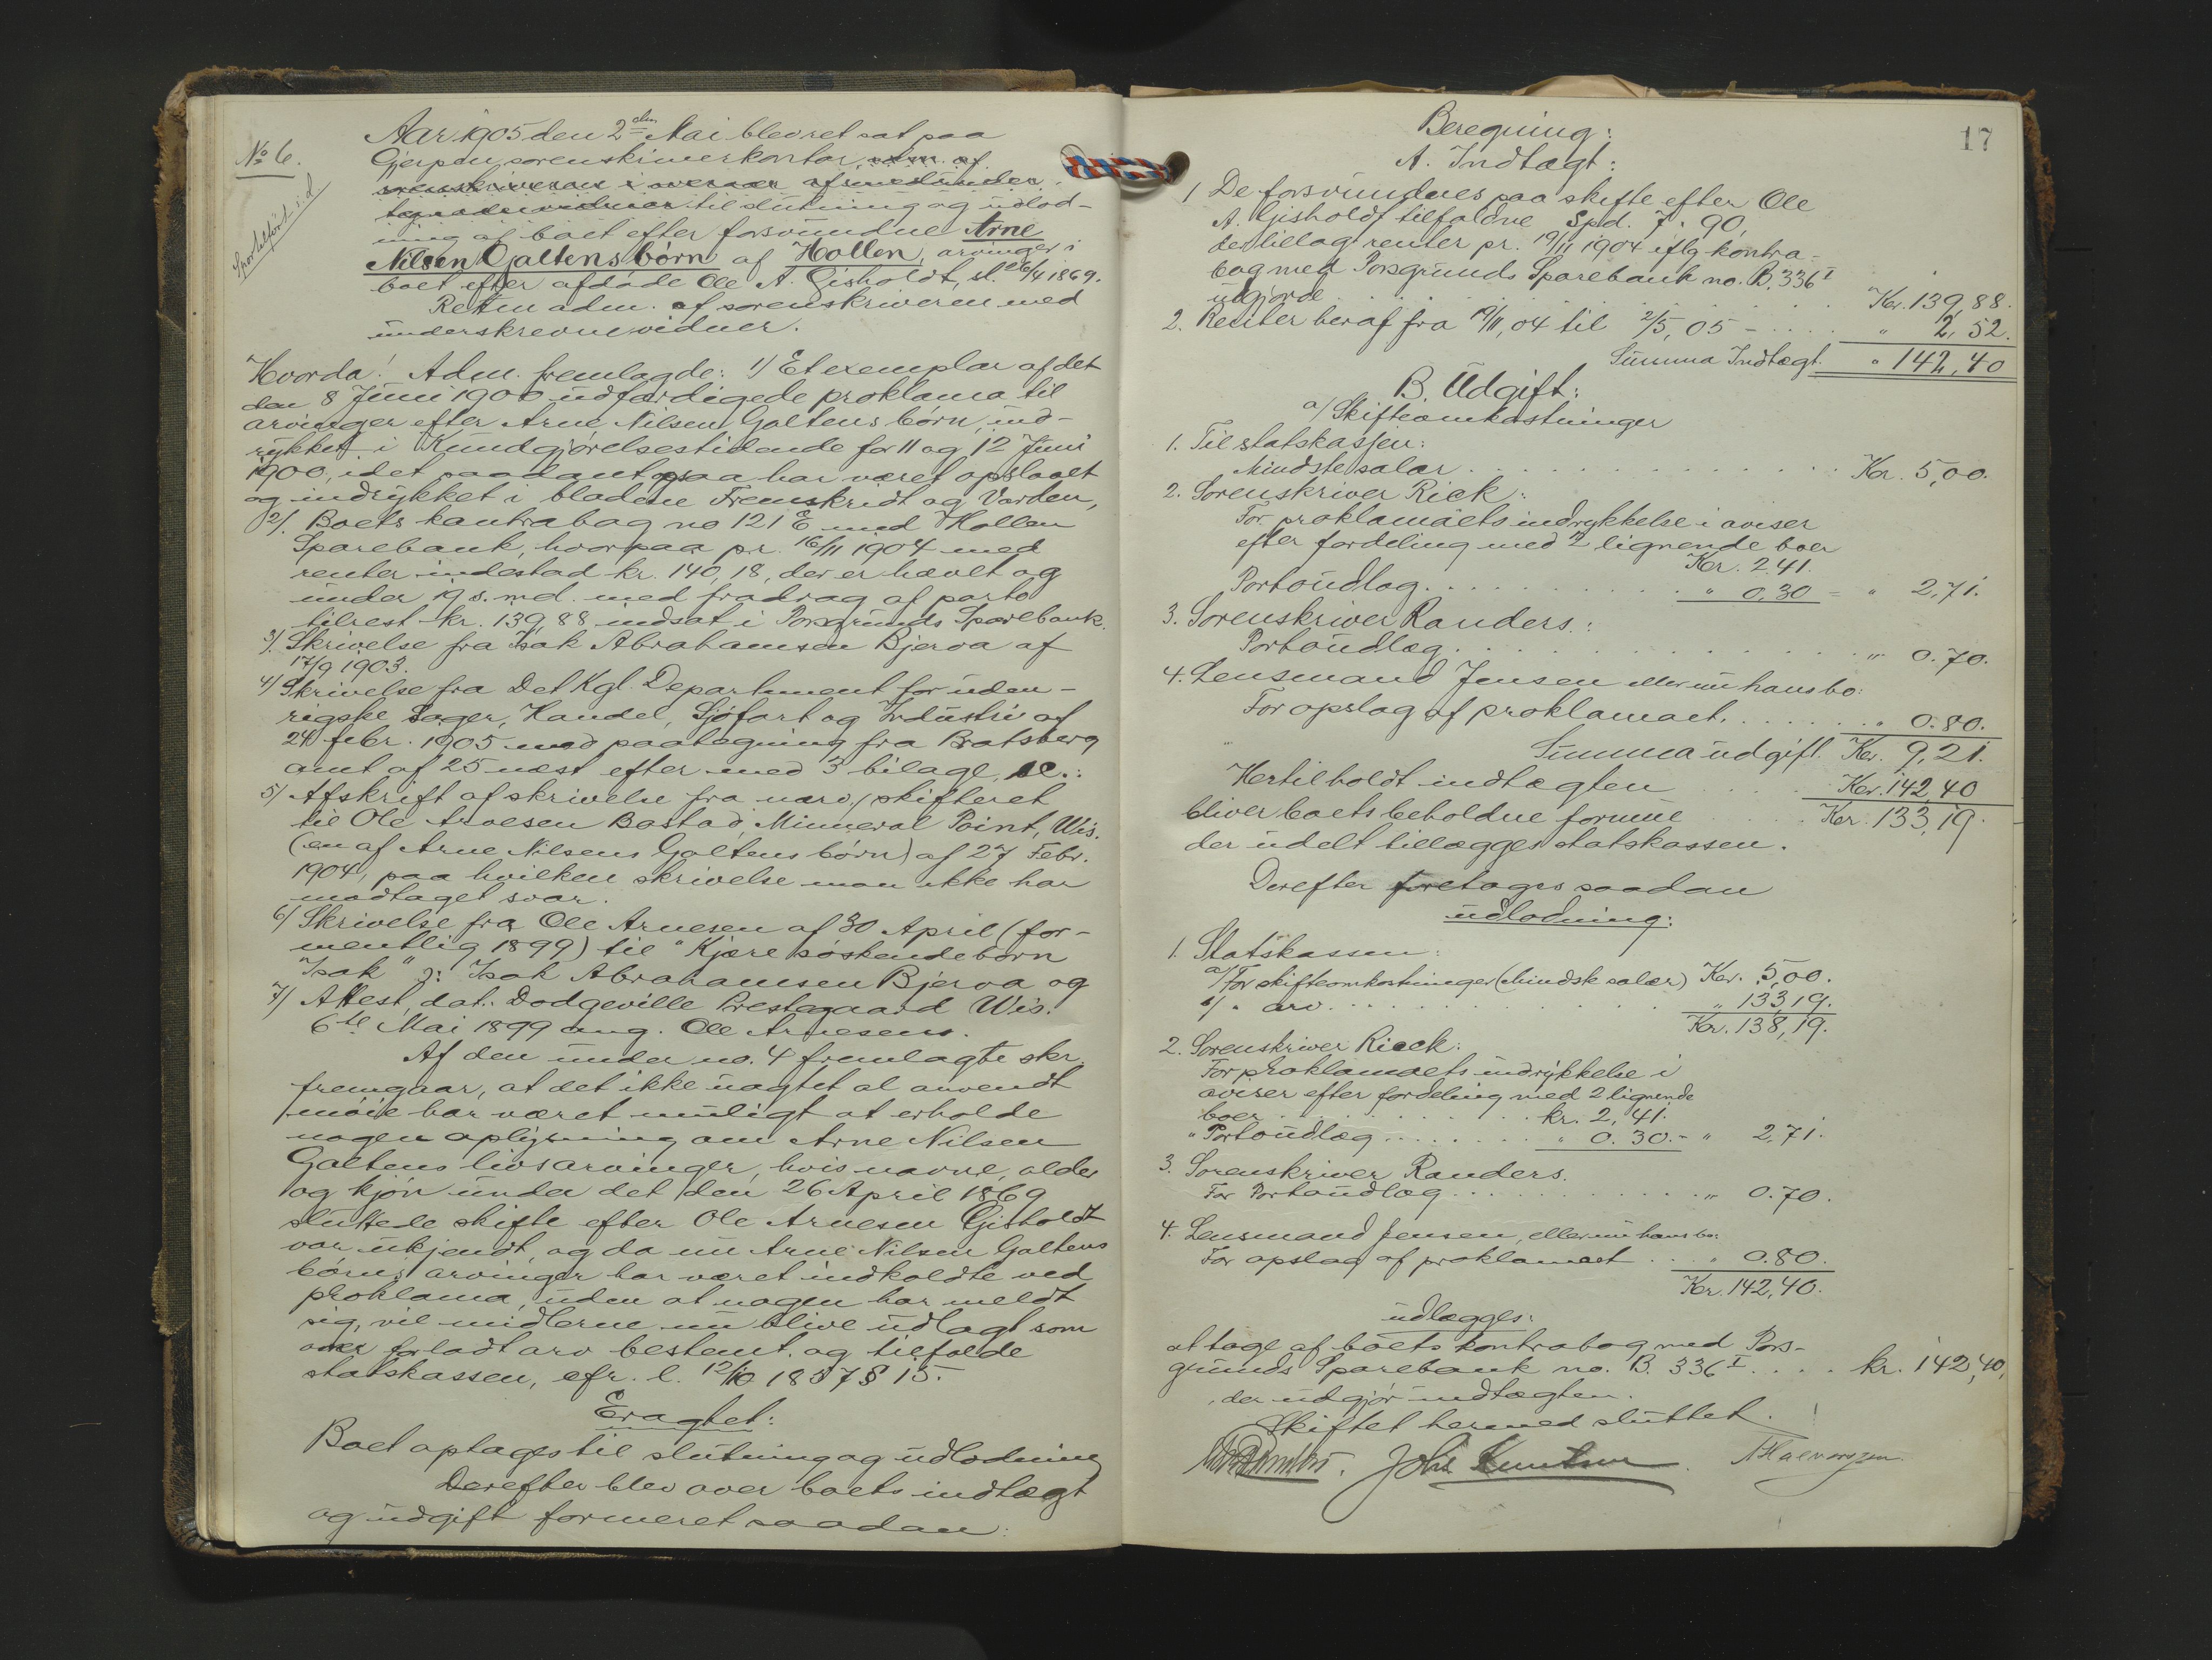 No 6.
Sportelført i d
Aar 1905 den 2den Mai blev ret sat paa
Gjerpen sorenskriverkontor, adm. af
sorenskriveren i overvær af
til slutning og udlod-
ning af boet efter forsvundne Arne
Nilsen Galtens børn af Hollen, arvinger i
boet efter afdøde Ole A. Gisholdt, sl. 26/4 1869.
Retten adm. af sorenskriveren med
underskrevne vidner.
Hvorda! Adm. fremlagde: 1) Et exemplar af det
den 8 Juni 1900 udfærdigede proklama til
arvinger efter Arne Nilsen Galtens børn, ind-
rykket i Kundgjørelsestidende for 11 og 12 Juni
1900, idet saadant ogsaa har været opslaaet
og indrykket i bladene Fremskridt og Varden,
2/. Boets kontrabog no 121 E med Hollen
Sparebank, hvorpaa pr. 16/11 1904 med
renter indestod kr. 140,18, der er hævet og
under 19 s. md. med fradrag af porto
tilrest kr. 139,88 indsat i Porsgrunds Sparebank.
3/. Skrivelse fra Isak Abrahamsen Bjerva af
17/9 1903.
4/ Skrivelse fra Det Kgl. Departement for uden-
rigske Sager, Handel, Sjøfart og Industri af
24 febr. 1905 med paategning fra Bratsberg
amt af 25 næst efter med 3 bilage, sc.:
5/ Afskrift af skrivelse fra nærv. skifteret
til Ole Arnesen Bastad, Minneral Point, Wis.
(en af Arne Nilsens Galtens børn) af 27 Febr.
1904, paa hvilken skrivelse man ikke har
modtaget svar.
6/ Skrivelse fra Ole Arnesen af 30 April (for-
mentlig 1899) til "Kjære søskendebørn
Isak" ɔ: Isak Abrahamsen Bjerva og
7/ Attest, dat. Dodgeville Prestegaard Wis.
6te Mai 1899 ang. Ole Arnesen.
Af den under no. 4 fremlagte skr.
fremgaar, at det ikke uagtet al anvendt
møie har været muligt at erholde
nogen oplysning om Arne Nilsen
Galtens livsarvinger, hvis navne, alder
og kjøn under det den 26 April 1869
sluttede skifte efter Ole Arnesen Gisholdt
var ukjendt, og da nu Arne Nilsen Galtens
børns arvinger har været indkaldte ved
proklama, uden at nogen har meldt
sig, vil midlerne nu blive udlagt som
forladt arv bestemt, og tilfalde
statskassen, cfr. l. 12/10 1857 § 15.
Eragtet:
Boet optages til slutning og udlodning
Derefter blev over boets indtægt
og udgift formeret saadan:
17
Beregning:
A. Indtægt:
1 De forsvundnes paa skifte efter Ole
A. Gisholdt tilfaldne Spd. 7. 90,
der tillagt renter pr. 19/11 1904 iflg. kontra-
bog med Porsgrunds Sparebank no. B. 336 I
udgjorde . . . Kr. 139,88.
2. Renter heraf fra 19/11,04 til 2/5,05 - . . . " 2,52.
Summa Indtægt " 142,40
B. Udgift:
a/ Skifteomkostninger
1. Til statskassen:
Mindste salær . . . Kr. 5,00.
2. Sorenskriver Rieck:
For proklamaets indrykkelse i aviser
efter fordeling med 2 lignende boer
Kr. 2,41.
Portoudlæg . . . " 0,30 = " 2,71.
3. Sorenskriver Randers:
Portoudlæg . . . " 0.70.
4. Lensmand Jensen eller nu hans bo:
For opslag af proklamaet. . . . " 0.80.
Summa udgift Kr. 9,21.
Hertil holdt indtægten . . . Kr. 142,40
bliver boets beholdne formue . . . Kr. 133,19.
der udelt tillægges statskassen.
Derefter foretages saadan
udlodning:
1. Statskassen:
a/ For skifteomkostninger (Mindste salær) Kr. 5,00.
b/ " arv . . . " 133,19.
Kr. 138,19.
2. Sorenskriver Rieck:
For proklamaets indrykkelse i
aviser efter fordeling med 2 lignende
boer . . . kr. 2,41.
" Portoudlæg . . . " 0.30.- " 2,71.
3. Sorenskriver Randers.
For Portoudlæg . . . " 0.70.
4. Lensmand Jensen, eller nu hans bo:
For opslag af proklamaet . . " 0.80.
Kr. 142,40.
udlægges:
at tage af boets kontrabog med Pors-
grunds Sparebank no. B. 336 I . . . . kr. 142,40,
der udgjør indtægten.
Skiftet hermed sluttet.
Johs Knutsen. Halvorsen.